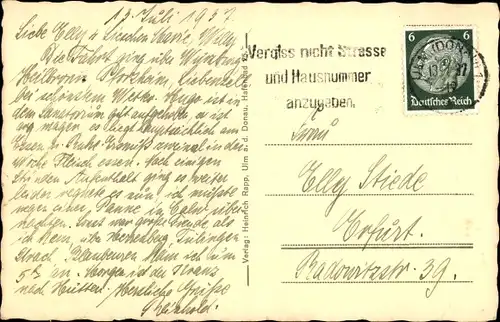 13. Juli 1937.
Liebe Elly u. Lieschen Marie, Willy
Die Fahrt ging über Würzburg
Heilbronn Pforzheim, Liebenzell
bei schönstem Wetter. Hugo ist in
dem Sanatorium gut aufgehoben, es ist
was magen es liegt hauptsächlich am
Essen u. Ruhe zweimal in der
Woche Fleisch essen. Nach einigen
Stunden Aufenthalt ging es weiter
leider regnete es nun, ich mußte
wegen einer Panne in Calw über-
nachten. war große Freude als
ich kam, über Herrenberg, Tübingen
Urach, Blaubeuren kam ich um
5 an. Morgen ist die
nach Herzliche Grüße
Reinhold.
Verlag: Heinrich Rapp, Ulm a. d. Donau,
Vergiss nicht Strasse
und Hausnummer
anzugeben.
ULM (DONAU)
6 6
Deutsches Reich
Frau
Elly Stiede
Erfurt.
Radowitzstr. 39.